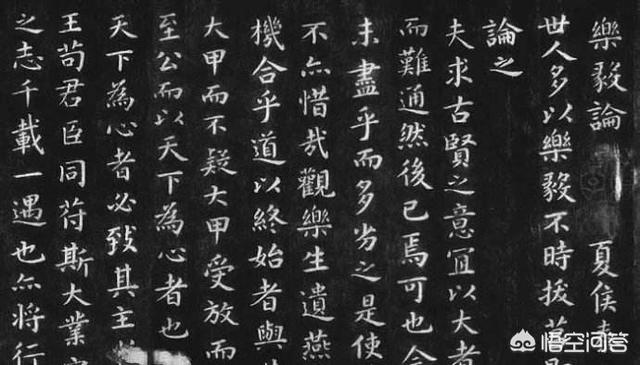 樂毅論 夏侯
世人多以樂毅不時拔莒
論之
夫求古賢之意宜以大者
而難通然後已焉可也今
未盡乎而多劣之是使
不亦惜哉觀樂生遺燕
機合乎道以終始者與
大甲而不疑大甲受放而
至公而以天下為心者也
天下為心者必致其主
王苟君臣同苻斯大業
之志千載一遇也亦將行
悟空问答